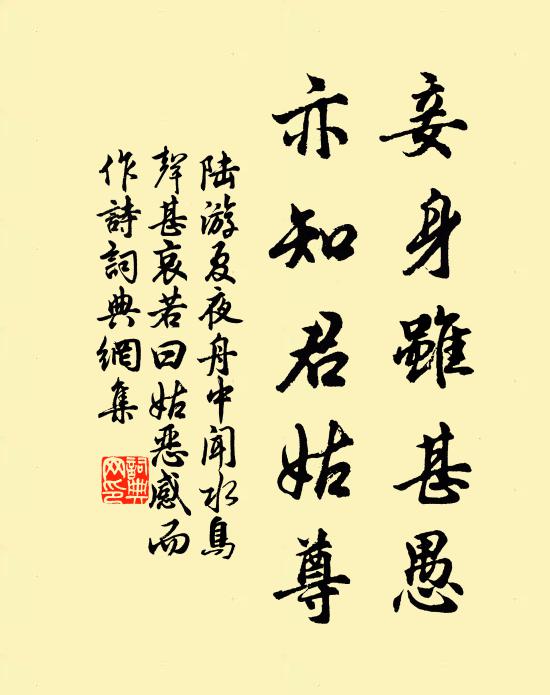 妾身雖甚愚
亦知君姑尊
陆游夏夜舟中闻水鳥
聲甚哀若曰姑恶感而
作詩詞典網集
詞典
网印